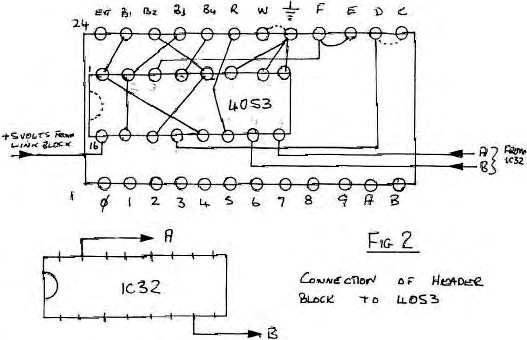 24 EXT B1 B2 B3 B4 R W F E D C
1
4053
+5 VOLTS FROM
LINK BLOCK
16
A } FROM
B } IC32
1 0 1 2 3 4 5 6 7 8 9 A B
A
IC32
B
FIG 2
CONNECTION OF HEADER
BLOCK TO 4053